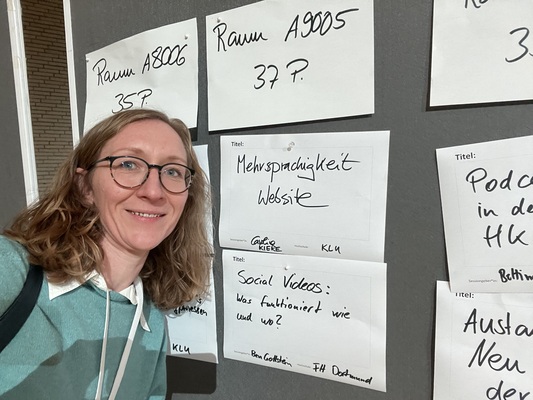 Raum A8006
35 P.
Raum A9005
37 P.
Titel:
Mehrsprachigkeit
Website
KIERE
KLU
Titel:
Social Videos:
Was funktioniert wie
und wo?
Ben Gottstein
FH Dortmund
KLU
3
Titel:
Podca
in de
HK
Bettin
Titel:
Austau
Neu
der